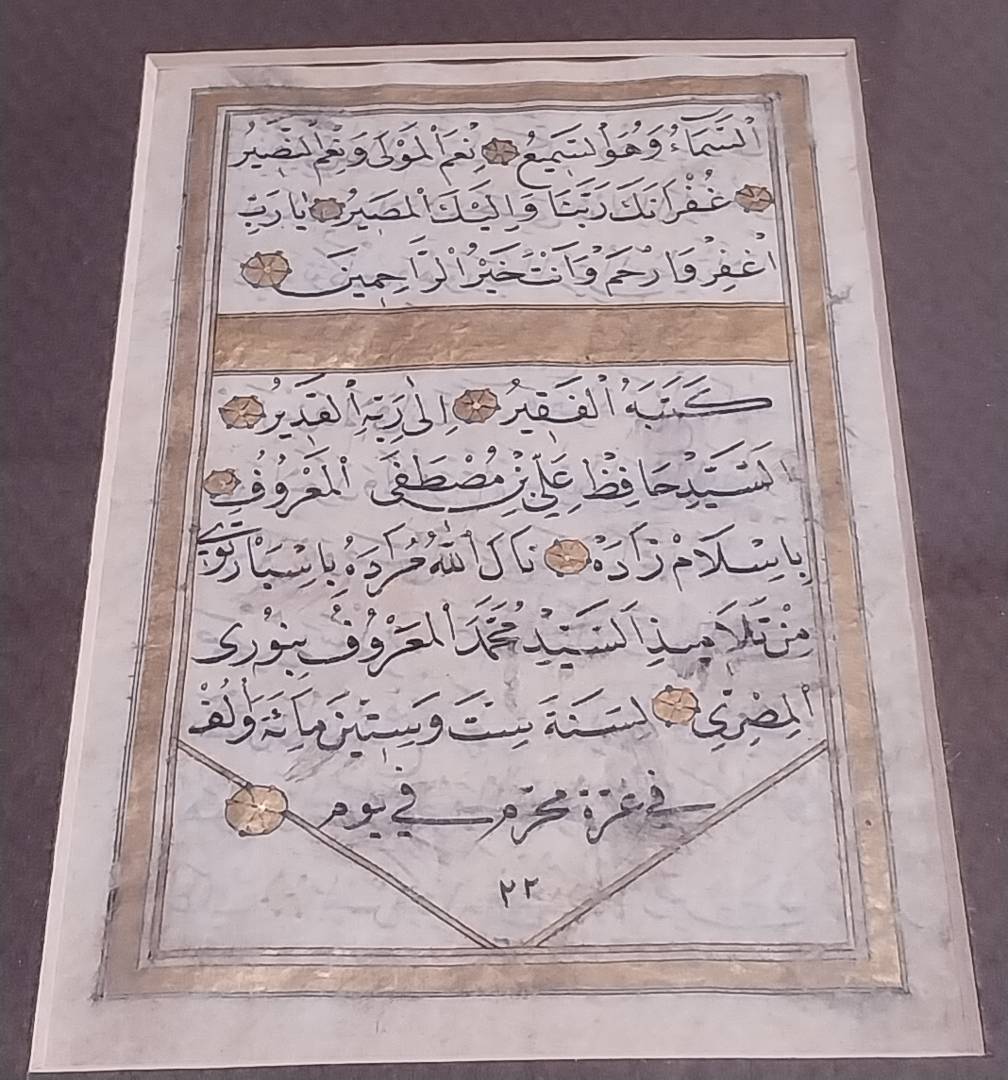 اَلسَّمَاءِ وَهُوَ السَّمِيعُ نِعْمَ الْمَوْلَى وَنِعْمَ النَّصِيرُ
غُفْرَانَكَ رَبَّنَا وَاِلَيْكَ الْمَصِيرُ يَا رَبِّ
اغْفِرْ وَارْحَمْ وَاَنْتَ خَيْرُ الرَّاحِمِينَ
كَتَبَهُ الْفَقِيرُ اِلٰى رَبِّهِ الْقَدِيرُ
اَلسَّيِّدْ حَافِظْ عَلِي بِنْ مُصْطَفَى الْمَعْرُوفِ
بِاِسْلَامْ زَادَهْ نَالَ اللّٰهُ مُرَادَهُ بِاِسْبَارْتَوِي
مِنْ تَلَامِيذِ السَّيِّدِ مُحَمَّدْ الْمَعْرُوفِ بِنُورِى
الْمِصْرِي لِسَنَةَ سِتَّ وَسِتِّينَ مِائَة وَاَلْفْ
فى غرة محرم فى يوم
٢٢